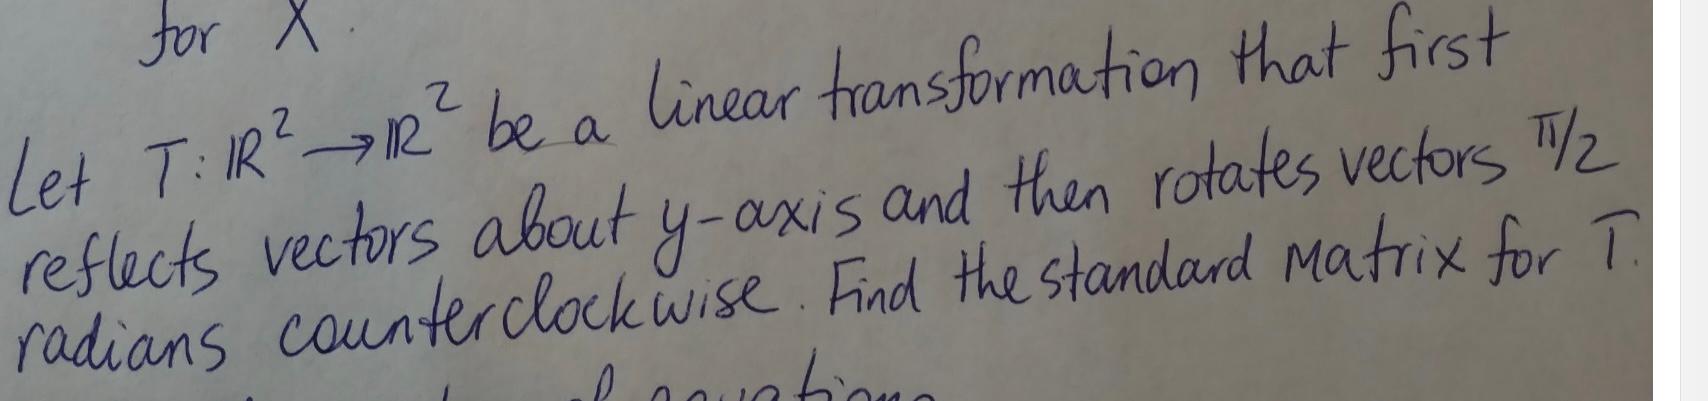 for X.
Let T: ℝ² → ℝ² be a linear transformation that first
reflects vectors about y-axis and then rotates vectors π/2
radians counterclockwise. Find the standard matrix for T.